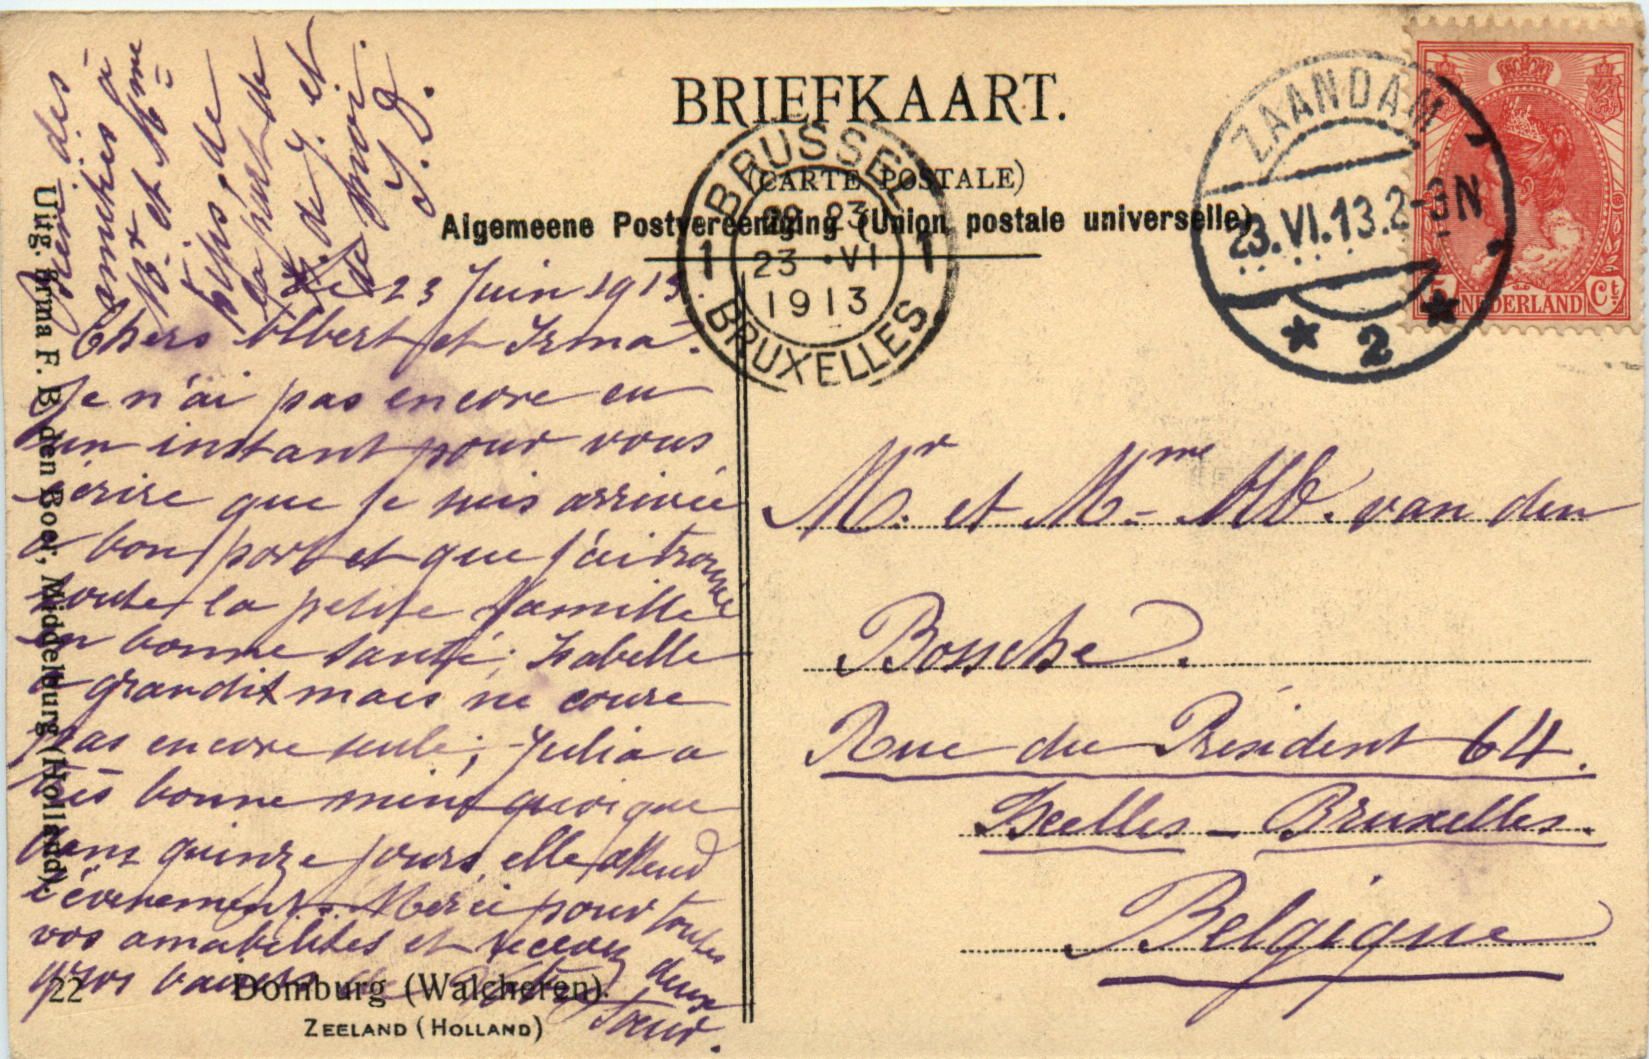 BRIEFKAART.
(CARTE POSTALE)
Algemeene Postvereeniging (Union postale universelle)
BRUSSEL
1 23 VI 1
1913
BRUXELLES
ZAANDAM
23.VI.13.2-3N
* 2 *
5 NEDERLAND Ct
Uitg. firma F. B. den Boer, Middelburg (Holland).
Bien des
amitiés à
Mr et Mme
de
la part de
J. et
de moi.
J.
Le 23 Juin 1913.
Chers Albert et Irma.
Je n'ai pas encore eu
un instant pour vous
écrire que je suis arrivée
à bon port et que j'ai trouvé
toute la petite famille
en bonne santé; Isabelle
a grandit mais ne coure
pas encore seule; Julia a
très bonne mine quoique
dans quinze jours, elle attend
l'évenement. Merci pour toutes
vos amabilités et recevez deux
gros baisers de
soeur.
22 Domburg (Walcheren).
ZEELAND (HOLLAND)
Mr. et Mme van den
Bossche.
Rue du Président 64.
Ixelles - Bruxelles.
Belgique